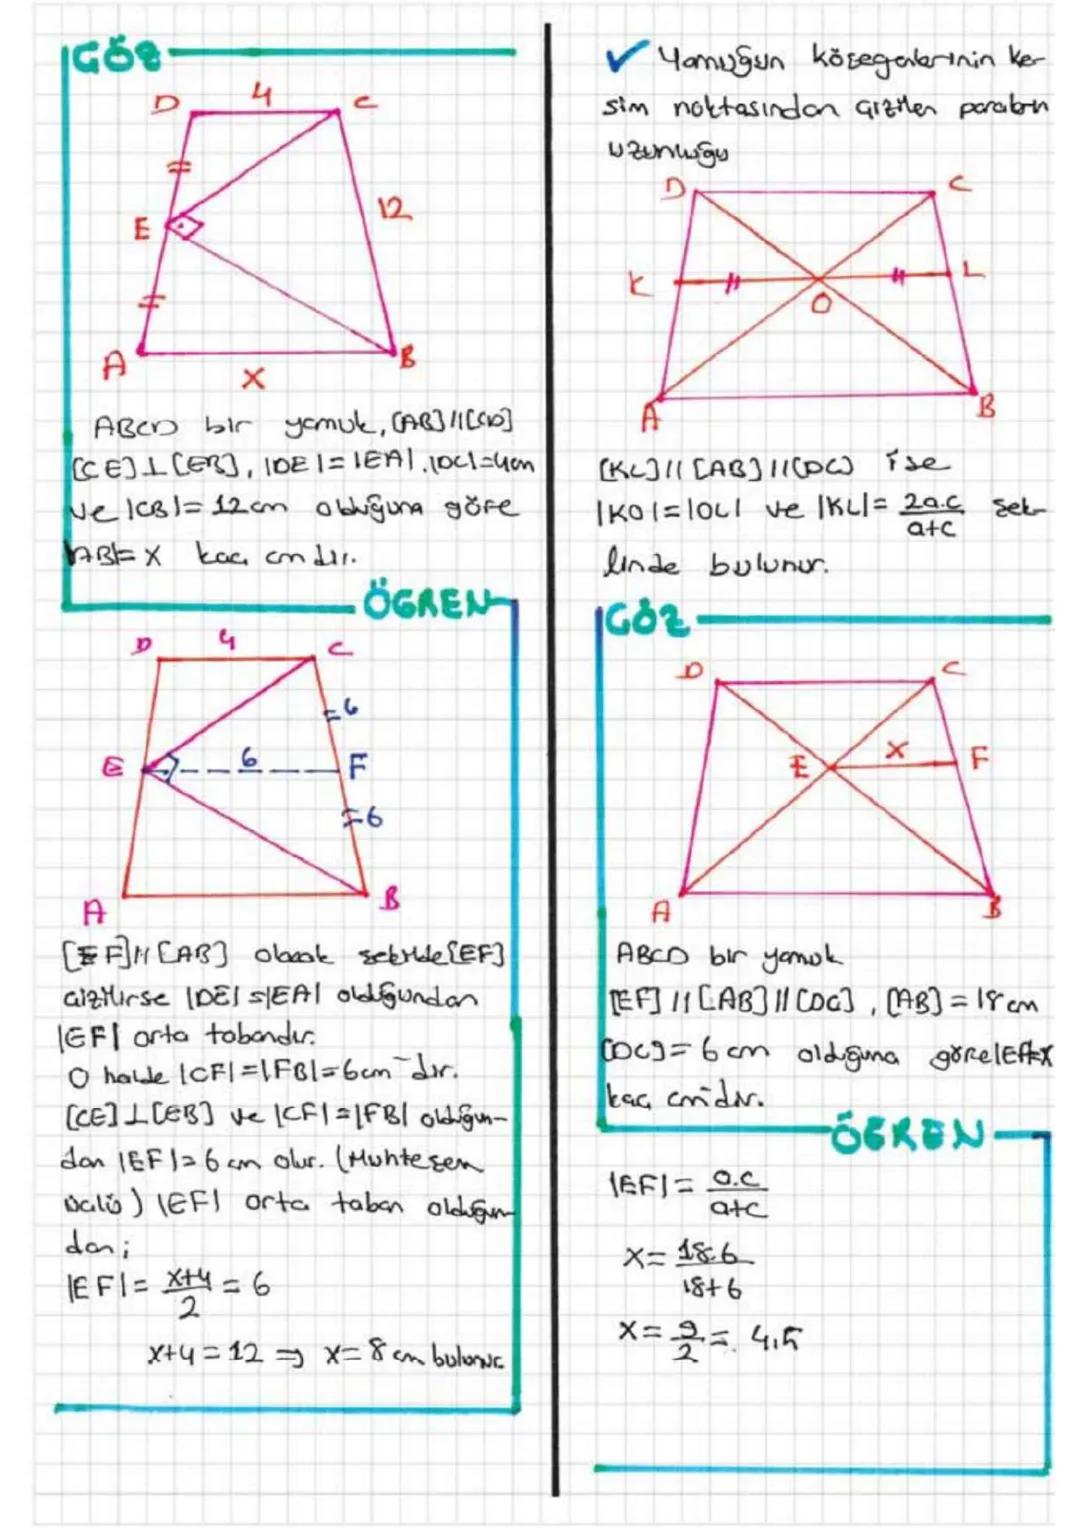 GÖZ
D 4 C
E 12
A x B
ABCD bir yamuk, [AB]//[CD]
[CE]⊥[EB], |DE|=|EA|, |DC|=4cm
ve |CB|=12cm olduğuna göre
|AB|=x kaç cm dir.
ÖĞREN
D 4 C
=6
E 6 F
=6
A B
[EF]//[AB] olacak şekilde [EF]
çizilirse |DE|=|EA| olduğundan
|EF| orta tabandır.
O halde |CF|=|FB|=6cm dir.
[CE]⊥[EB] ve |CF|=|FB| olduğun-
dan |EF|=6 cm olur. (Muhteşem
üçlü) |EF| orta taban olduğun
dan;
|EF|= x+4/2 = 6
x+4=12 ⇒ x=8 cm bulunur
✓ Yamuğun köşegenlerinin ke-
sim noktasından çizilen paralelin
uzunluğu
D C
K O L
A B
[KL]//[AB]//[DC] ise
|KO|=|OL| ve |KL|= 2a.c/a+c şek-
linde bulunur.
GÖZ
D C
E x F
A B
ABCD bir yamuk
[EF]//[AB]//[DC], [AB]=18cm
[DC]=6cm olduğuna göre |EF|=x
kaç cm'dir.
ÖĞREN
|EF|= a.c/a+c
x= 18.6/18+6
x= 9/2 = 4,5